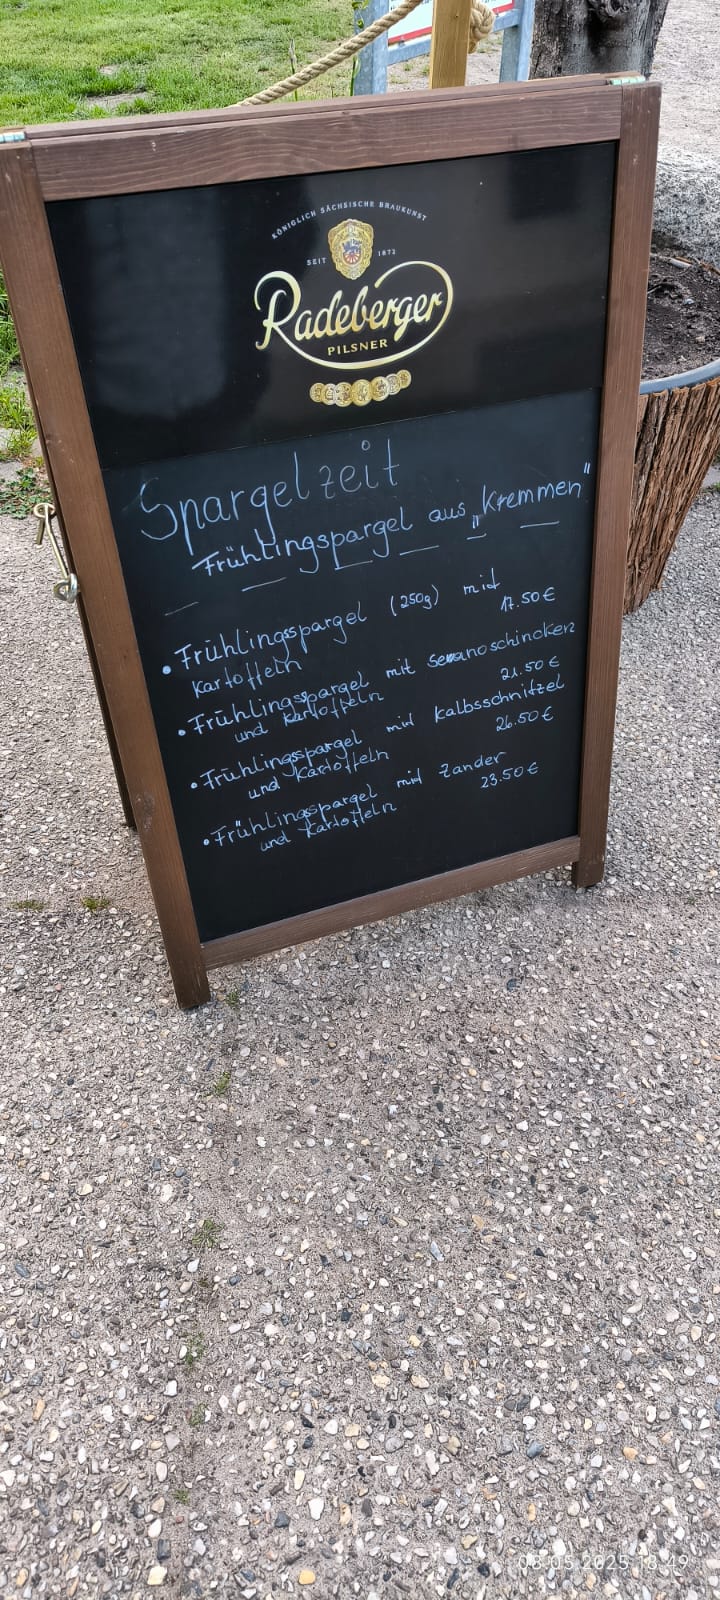 KÖNIGLICH SÄCHSISCHE BRAUKUNST
SEIT 1872
Radeberger
PILSNER
Spargelzeit
Frühlingspargel aus "Kremmen"
• Frühlingsspargel (250g) mit
Kartoffeln 17.50€
• Frühlingsspargel mit Serranoschincken
und Kartoffeln 21.50€
• Frühlingsspargel mit Kalbsschnitzel
und Kartoffeln 26.50€
• Frühlingsspargel mit Zander
und Kartoffeln 23.50€
08.05.2025 13:49